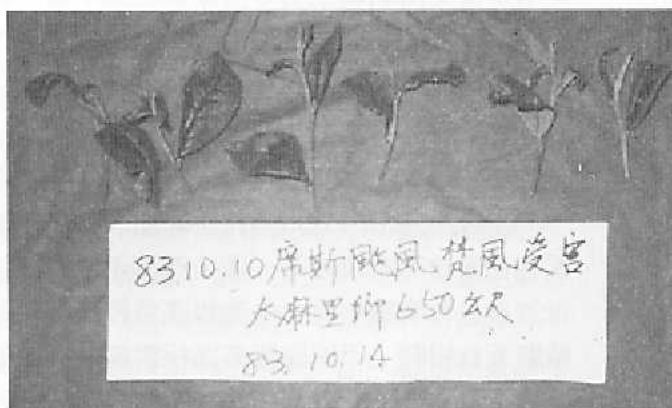 83.10.10席斯颱風梵風受害
太麻里鄉650公尺
83.10.14